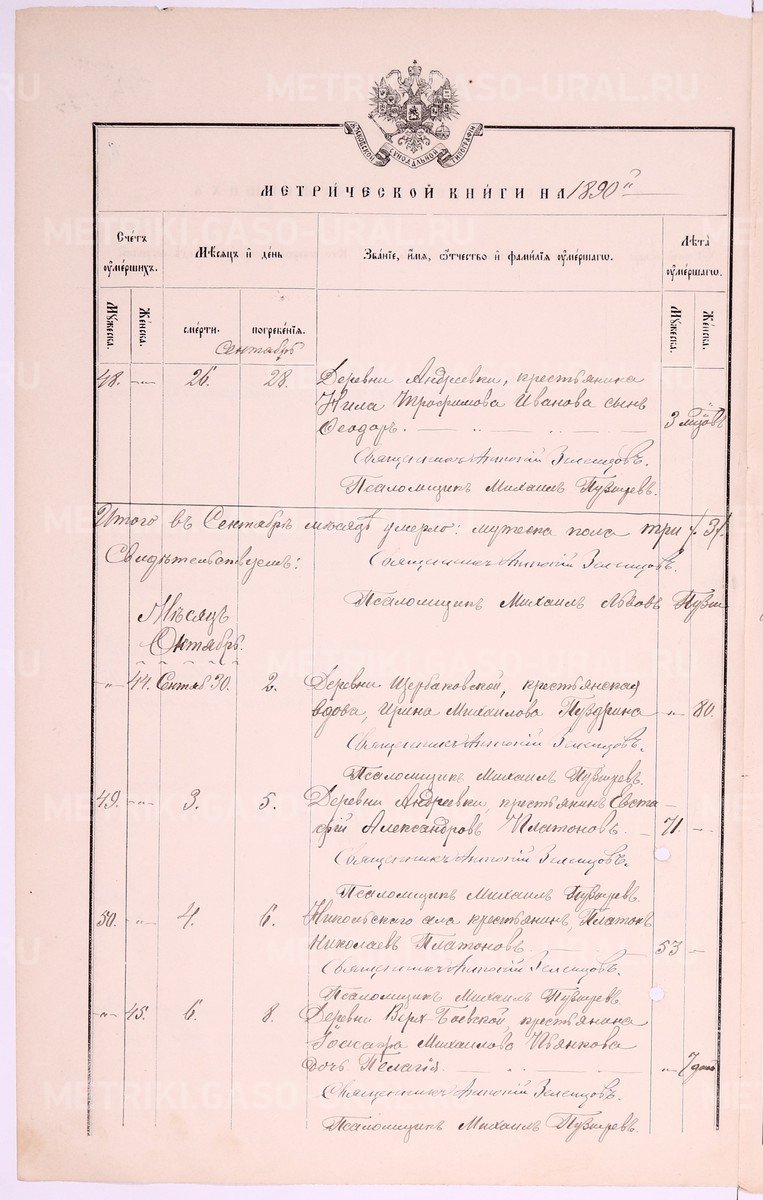 METRIKI.GASO-URAL.RU
МОСКОВСКОЙ СѴНОДАЛЬНОЙ ТИПОГРАФІИ
МЕТРИ́ЧЕСКОЙ КНИ́ГИ НА 1890 г.
Сче́тъ ᲂу҆ме́ршихъ.
Мѣ́сяцъ и҆ де́нь
Зва́нїе, и҆́мя, ѻ҆́тчество и҆ фами́лїя ᲂу҆ме́ршагѡ.
Лѣ́та ᲂу҆ме́ршагѡ.
Мꙋ́жеска.
Же́нска.
сме́рти.
погребе́нїя.
Мꙋ́жеска.
Же́нска.
Сентябрь
48. „ 26. 28. Деревни Андреевки, крестьянина
Нила Трофимова Иванова сынъ
Ѳеодоръ. 3 мцовъ
Священникъ Антоній
Псаломщикъ Михаилъ
Итого въ Сентябрѣ мѣсяцѣ умерло: мужеска пола три /3/.
Свидѣтельствуемъ: Священникъ Антоній
Псаломщикъ Михаилъ
Мѣсяцъ
Октябрь.
„ 44. Сентяб 30. 2. Деревни Щербаковской, крестьянская
вдова, Ирина Михаилова Пуздрина „ 80.
Священникъ Антоній
Псаломщикъ Михаилъ
49. „ 3. 5. Деревни Андреевки, крестьянинъ Евста-
фій Александровъ Платоновъ. 71 „
Священникъ Антоній
Псаломщикъ Михаилъ
50. „ 4. 6. Никольскаго села крестьянинъ, Платонъ
Николаевъ Платоновъ 53 „
Священникъ Антоній
Псаломщикъ Михаилъ
„ 45. 6. 8. Деревни Верх-Боевской, крестьянина
Іоасафа Михаилова Пьянкова
дочь Пелагія. „ 7 дней
Священникъ Антоній
Псаломщикъ Михаилъ